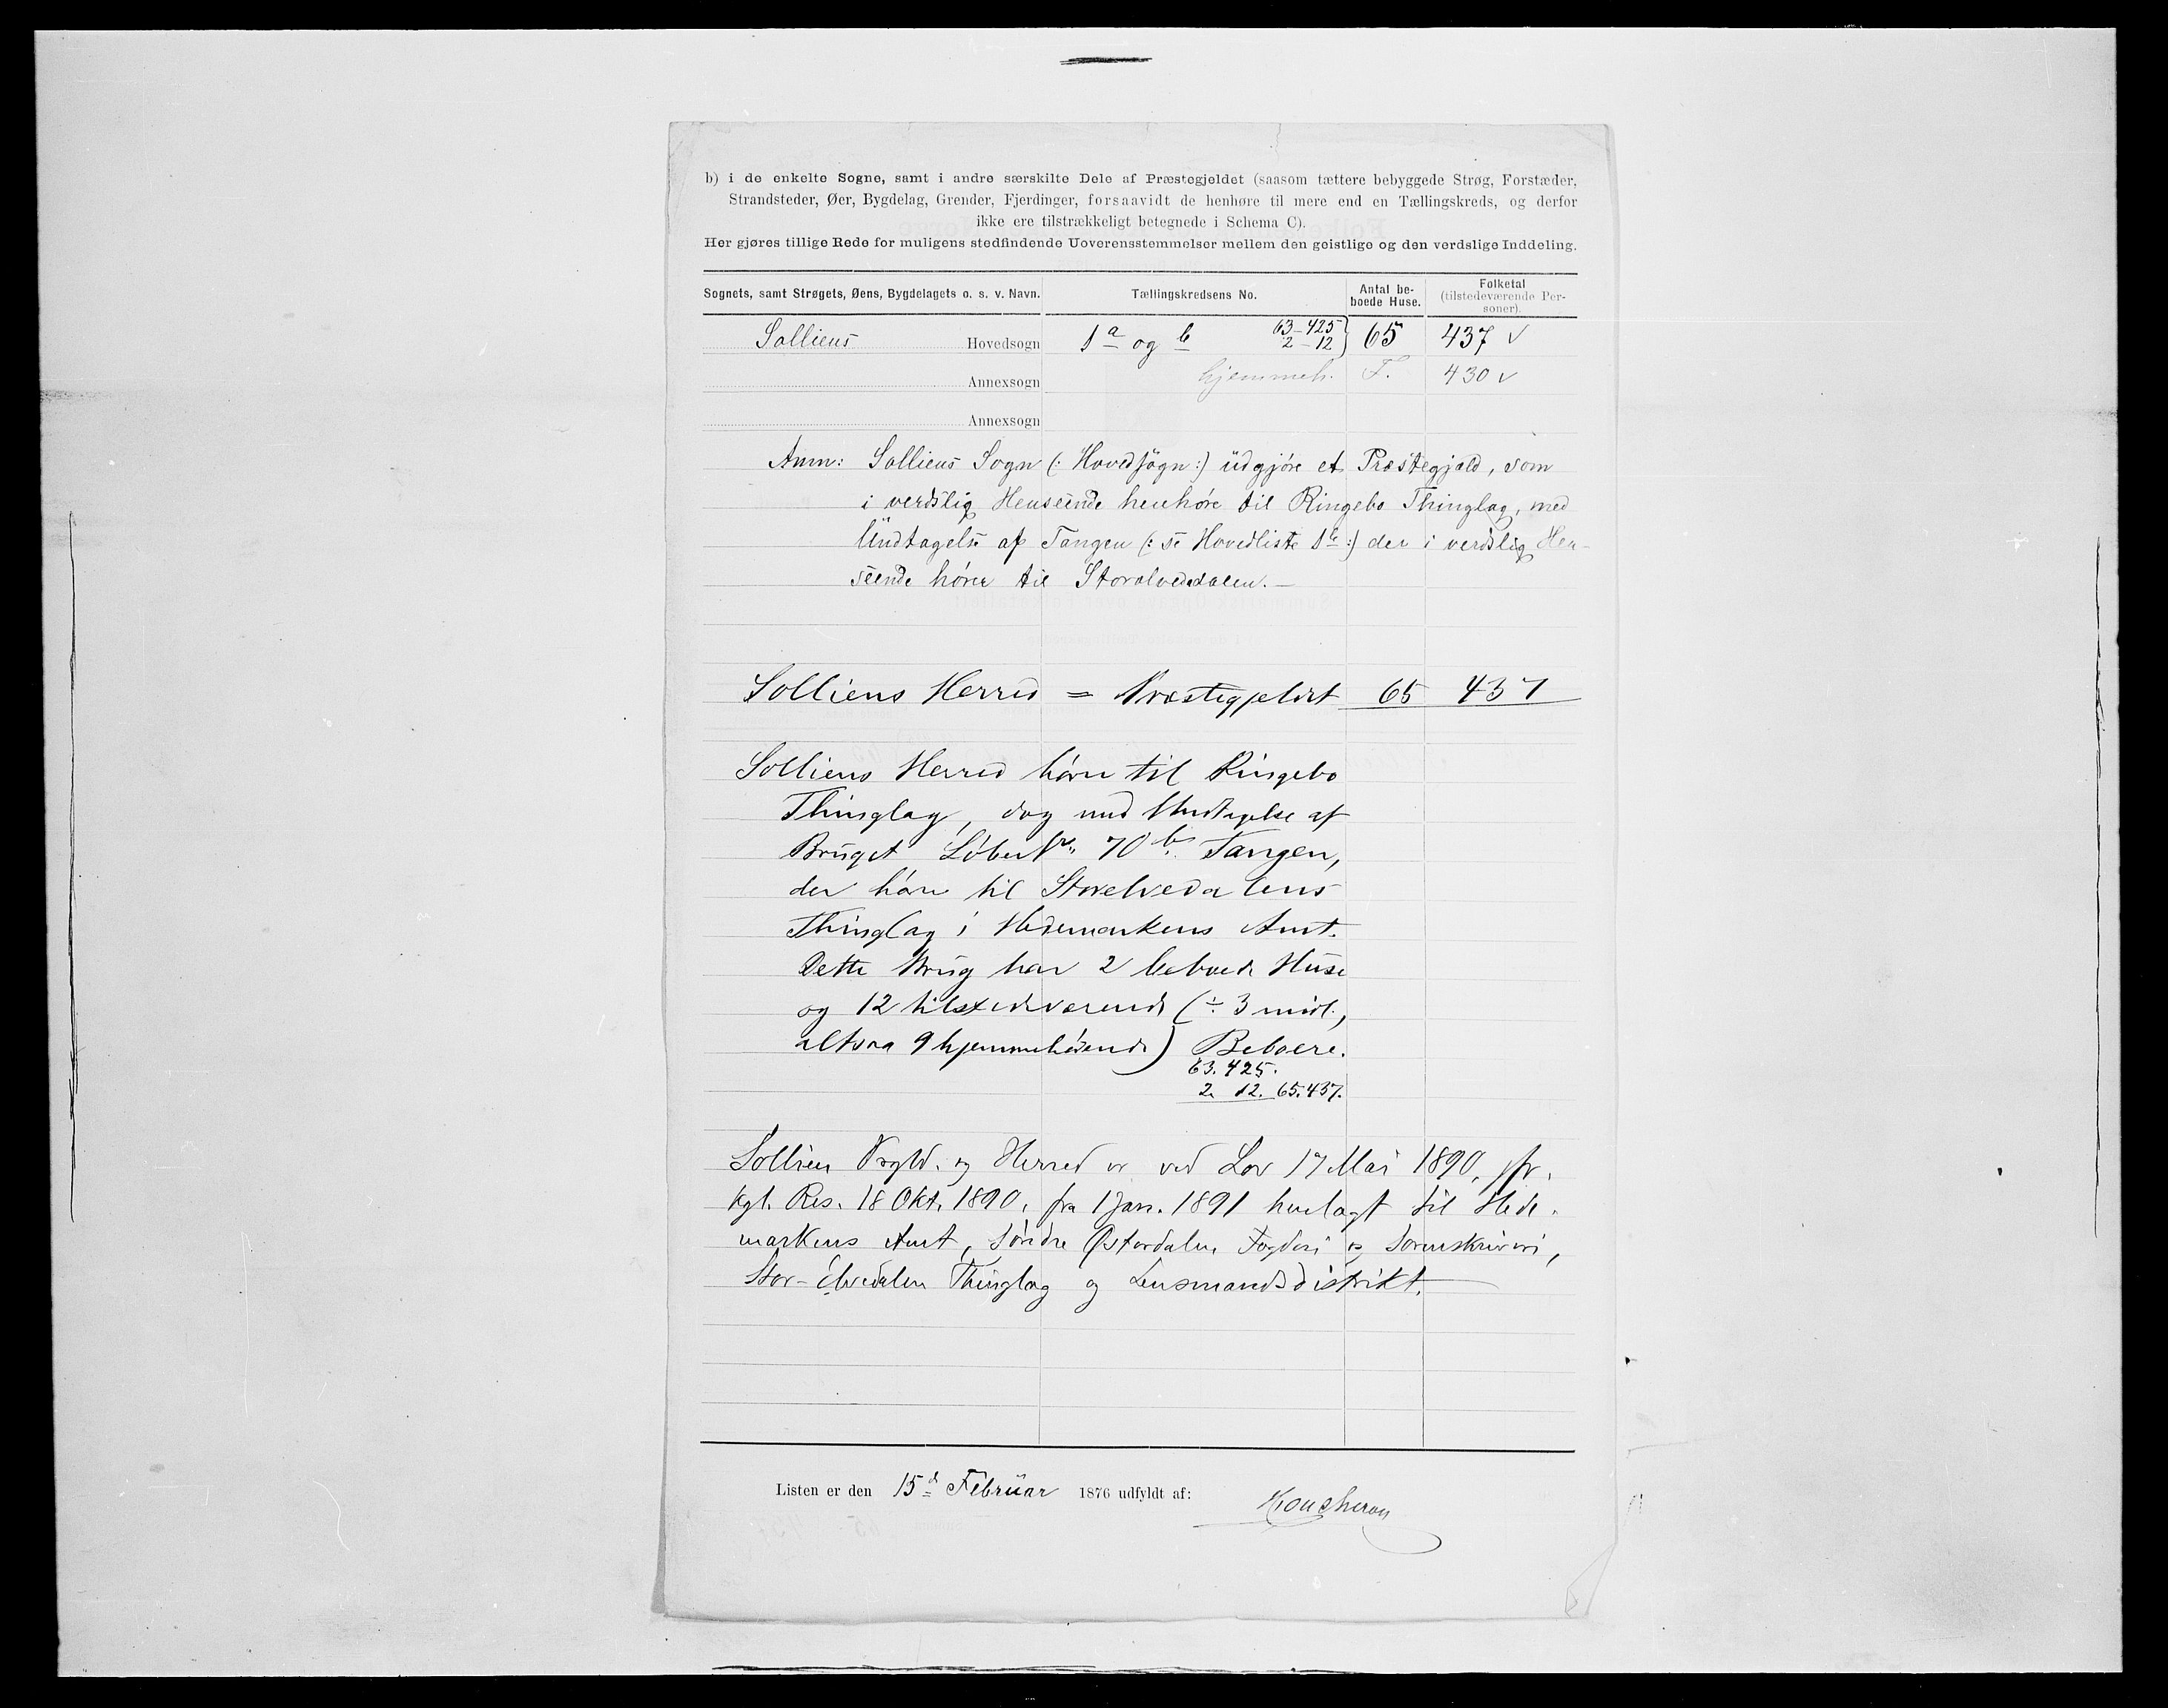 b) i de enkelte Sogne, samt i andre særskilte Dele af Præstegjeldet (saasom tættere bebyggede Strøg, Forstæder,
Strandsteder, Øer, Bygdelag, Grender, Fjerdinger, forsaavidt de henhøre til mere end en Tællingskreds, og derfor
ikke ere tilstrækkeligt betegnede i Schema C).
Her gjøres tillige Rede for muligens stedfindende Uoverensstemmelser mellem den geistlige og den verdslige Inddeling.
Sognets, samt Strøgets, Øens, Bygdelagets o. s. v. Navn. Tællingskredsens No. Antal be- boede Huse. Folketal (tilstedeværende Per- soner).
Solliens Hovedsogn 1a og b 63-425 2-12 } 65 437 v
Annexsogn hjemmeh. F. 430 v
Annexsogn
Anm: Solliens Sogn (: Hovedsogn :) udgjøre et Præstegjæld, som
i verdslig Henseende henhøre til Ringebo Thinglag, med
Undtagelse af Tangen (: se Hovedliste 1b :) der i verdslig Hen-
seende hører til Storelvedalen.-
Solliens Herred = Præstegjeldet 65 437
Solliens Herred hører til Ringebo
Thinglag, dog med Undtagelse af
Bruget Løbe No 70 b. Tangen,
der hører til Storelvedalens
Thinglag i Hedemarkens Amt.
Dette Brug har 2 beboede Huse
og 12 tilstedeværende (÷ 3 midl.,
altsaa 9 hjemmehørende) Beboere.
63. 425.
2. 12. 65.437.
Sollien Prgld. og Herred er ved Lov 17 Mai 1890, jfr.
kgl. Res. 18 Okt. 1890, fra 1 Jan. 1891 henlagt til Hede-
markens Amt, Søndre Østerdalen Fogderi og Sorenskriveri,
Stor-Elvedalen Thinglag og Lensmandsdistrikt.
Listen er den 15d Februar 1876 udfyldt af: Koucheron